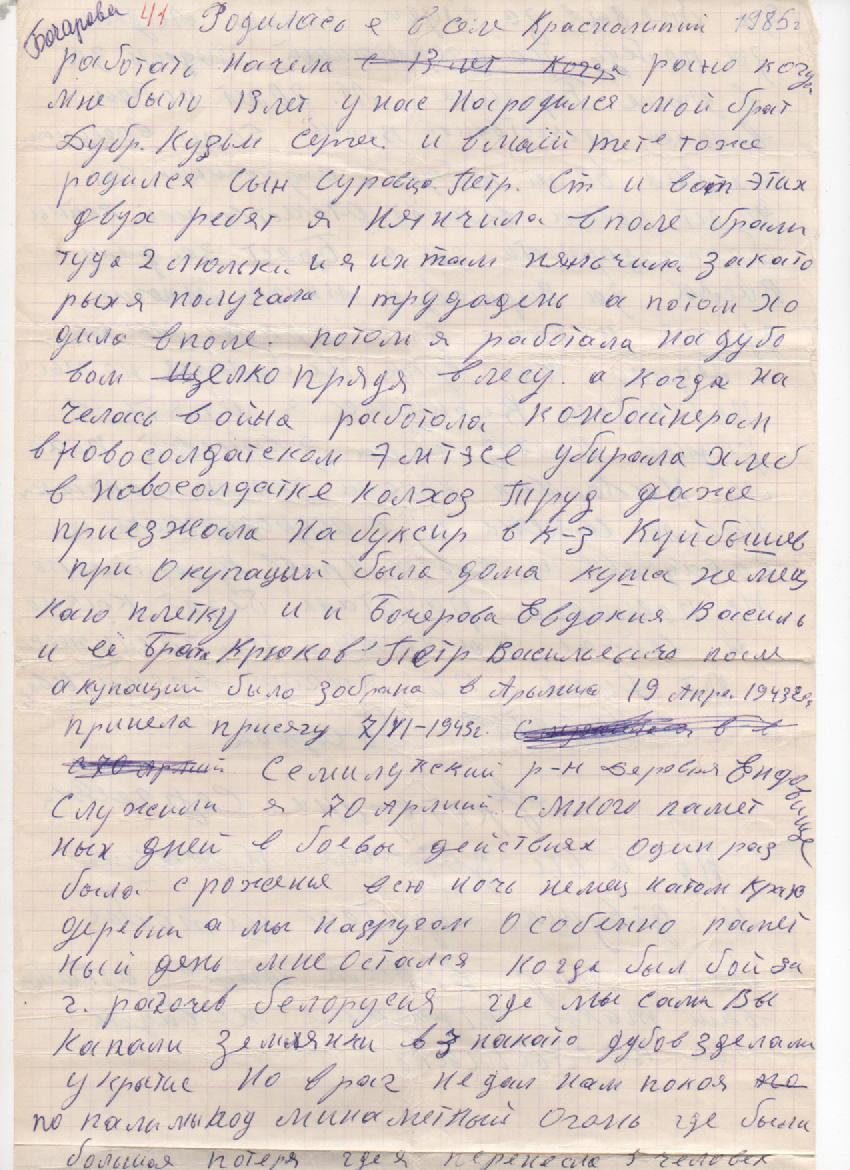 Бочарова 41 Родилась я в селе Краснолипий 1985г
работать начела с 13 лет когда рано когда
мне было 13 лет у нас Народился мой брат
Дубр. Кузьм Серге. и вмаей тете тоже
родился Сын Суровцо. Петр. Ст и вот этих
двух ребят я Нянчила в поле брали
туда 2 люльки и я их там няньчила Закато
рыхя получала 1 трудодень а потом хо
дила в поле. потом я работала На дубо
вом Щелко прядя в лесу. а когда на
челась война работола комбайнером
в Новосолдатском 7 мтзсе убирала хлеб
в Новосолдатке колхоз Труд даже
приезжола На буксир в к-з Куйбышев
при Окупаций была дома куша немец
каю плетку и и Бочерова Евдокия Василь
и её Брата Крюков Петр Васильевича посля
акупаций было зобрана в Армию 19 Апре. 1943гда
принела присягу 7/VI-1943г. в
с 70 Армий Семилукский р-н деревня Ендовище
Служили я 70 армий. Смного памет
ных дней в боевы действиях один раз
была срожения всю ночь немец натом краю
деревни а мы надругом Особенно памет
ный день мне Остался когда был бой за
г. рагочев Белорусия где мы сами Вы
капали землянки в 3 наката дубов зделали
укрытие Но враг недал нам покоя но
по пали мы под минаметный Огонь где были
большая потеря где я перенесла 5 человек